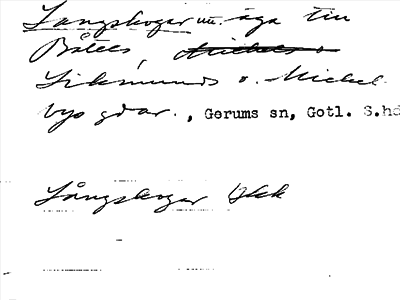 Långskogar m. äga tin
Båtels,
Siksmunds o. Mickel
bys gdar., Gerums sn, Gotl. S.hd
Långskogar Ukk